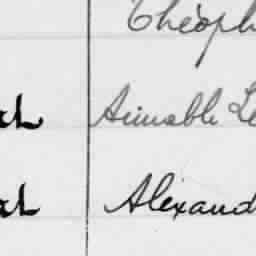 Théoph
Aimable Le
Alexand